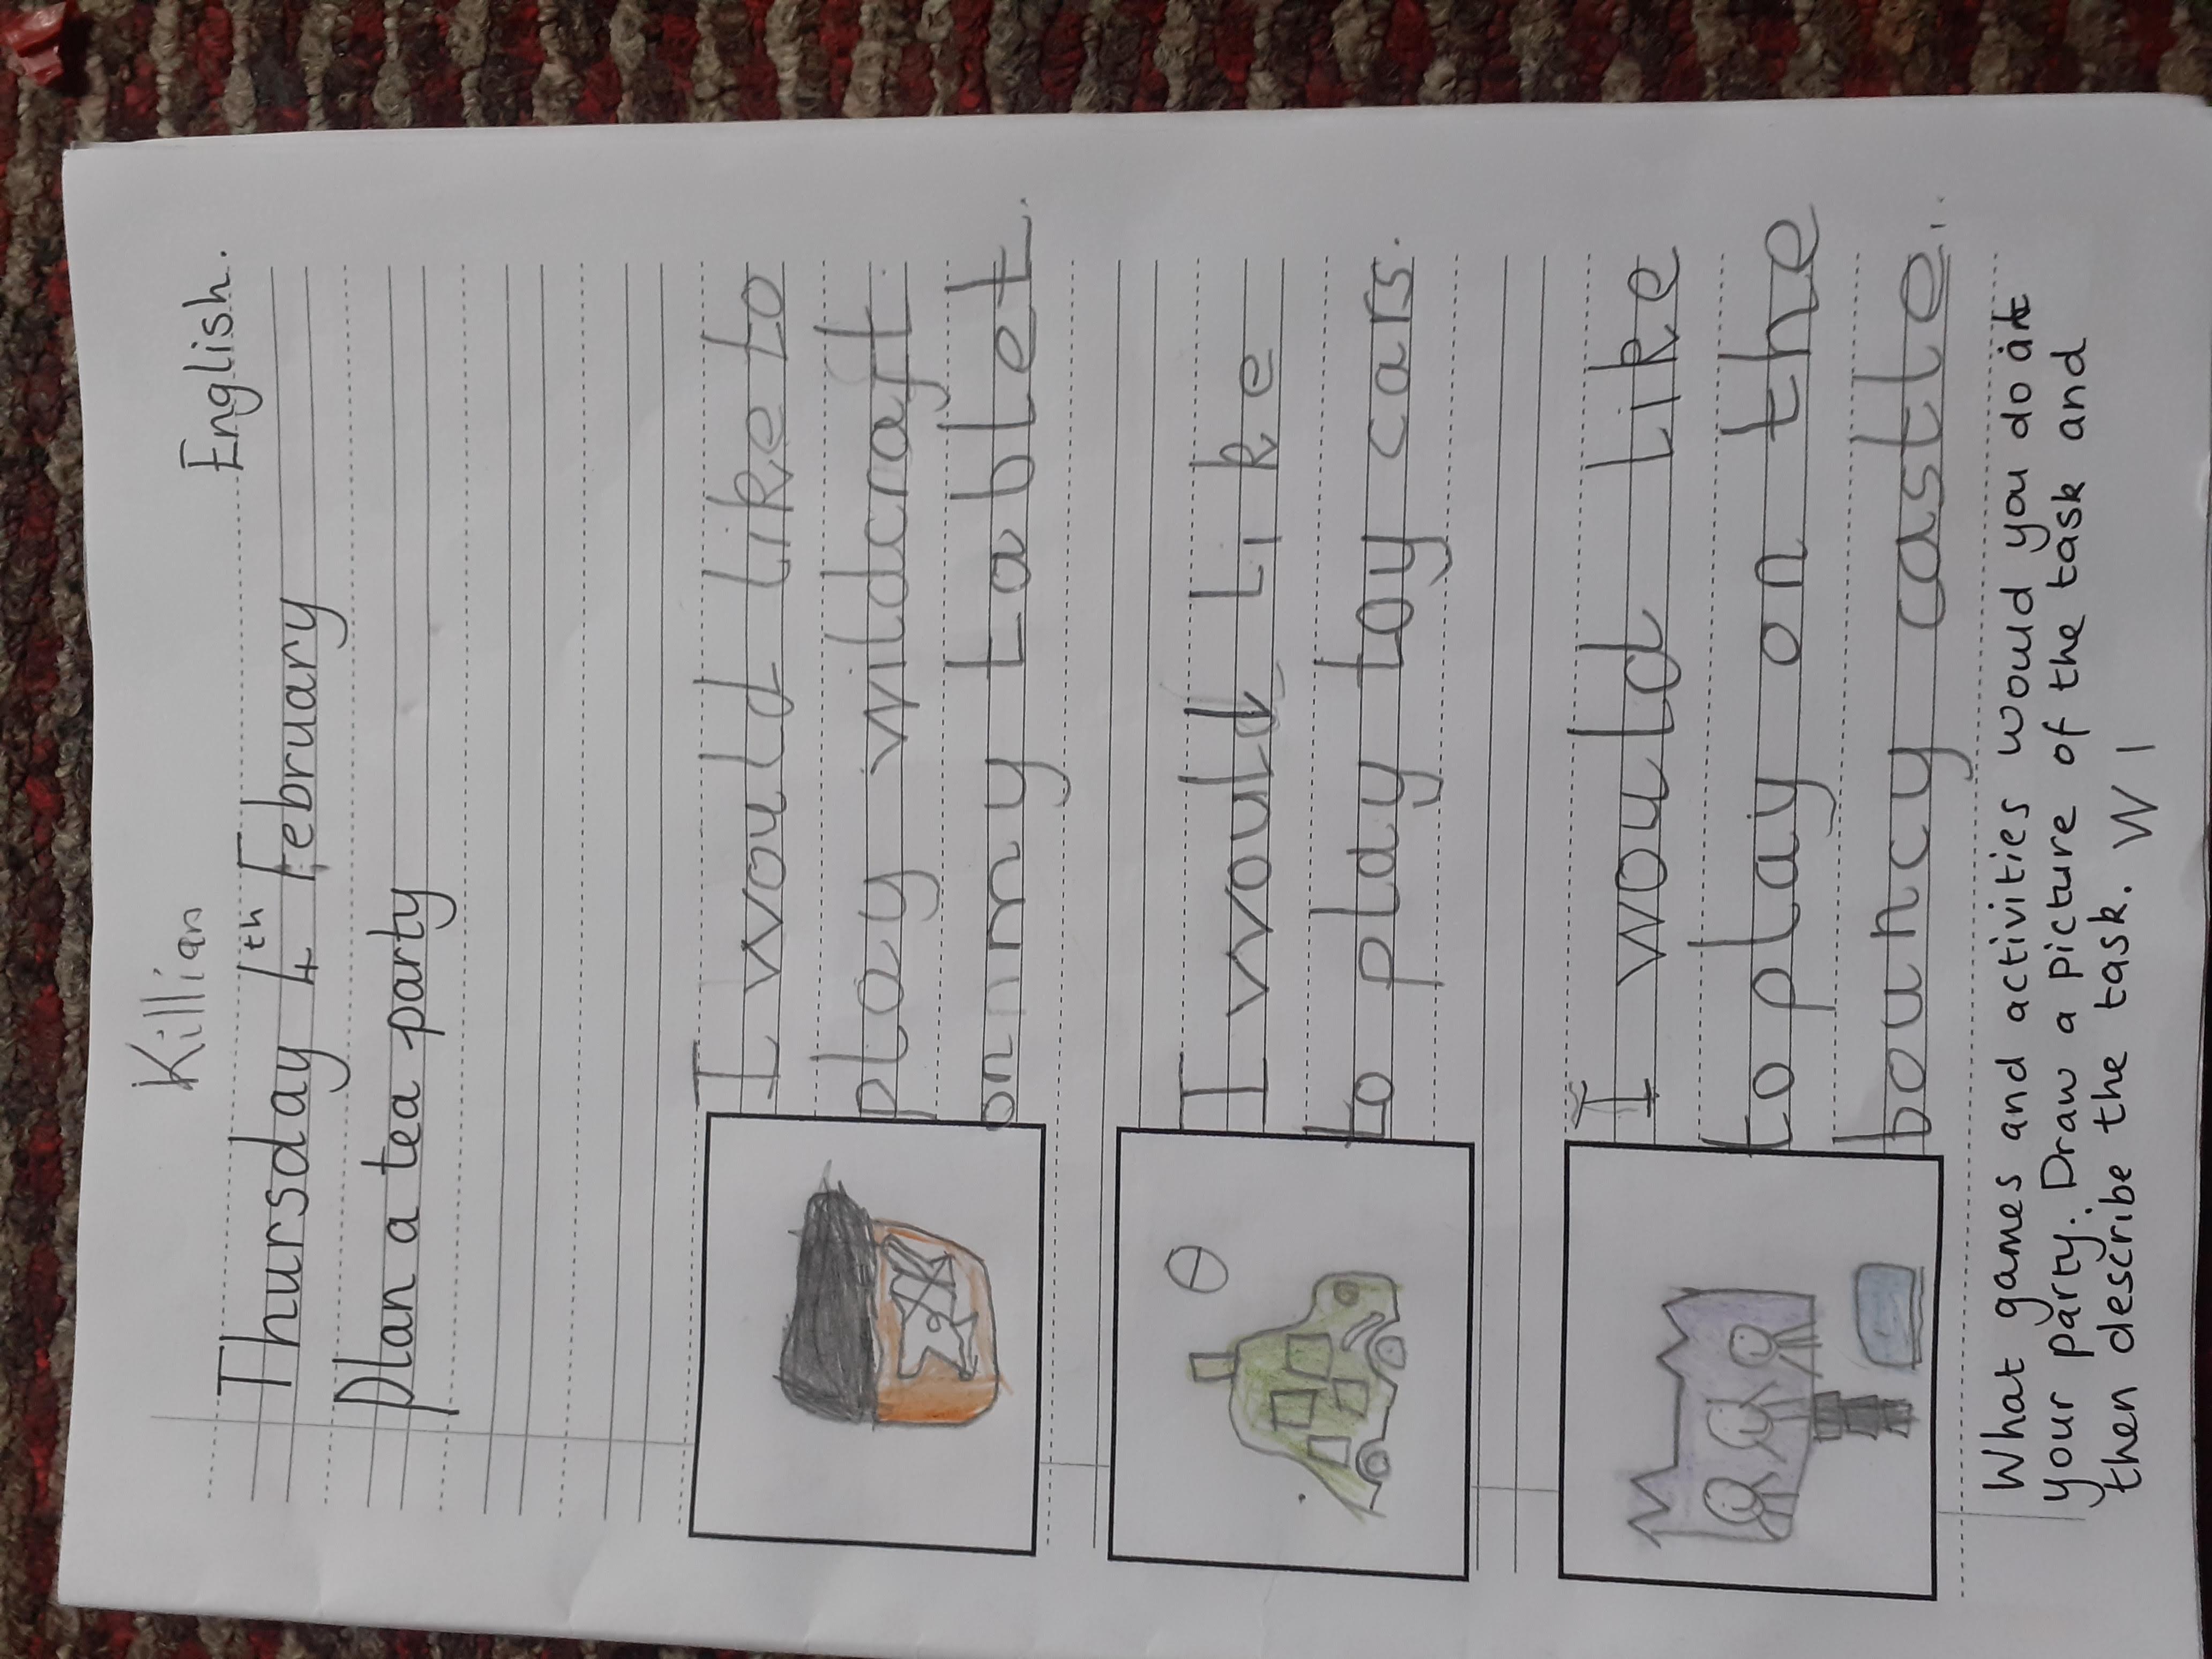 Killian
English.
Thursday 4th February
Plan a tea party
I would like to
play wildcraft
on my tablet.
I would like
to play toy cars.
I would like
to play on the
bouncy castle.
What games and activities would you do at
your party. Draw a picture of the task and
then describe the task. W 1